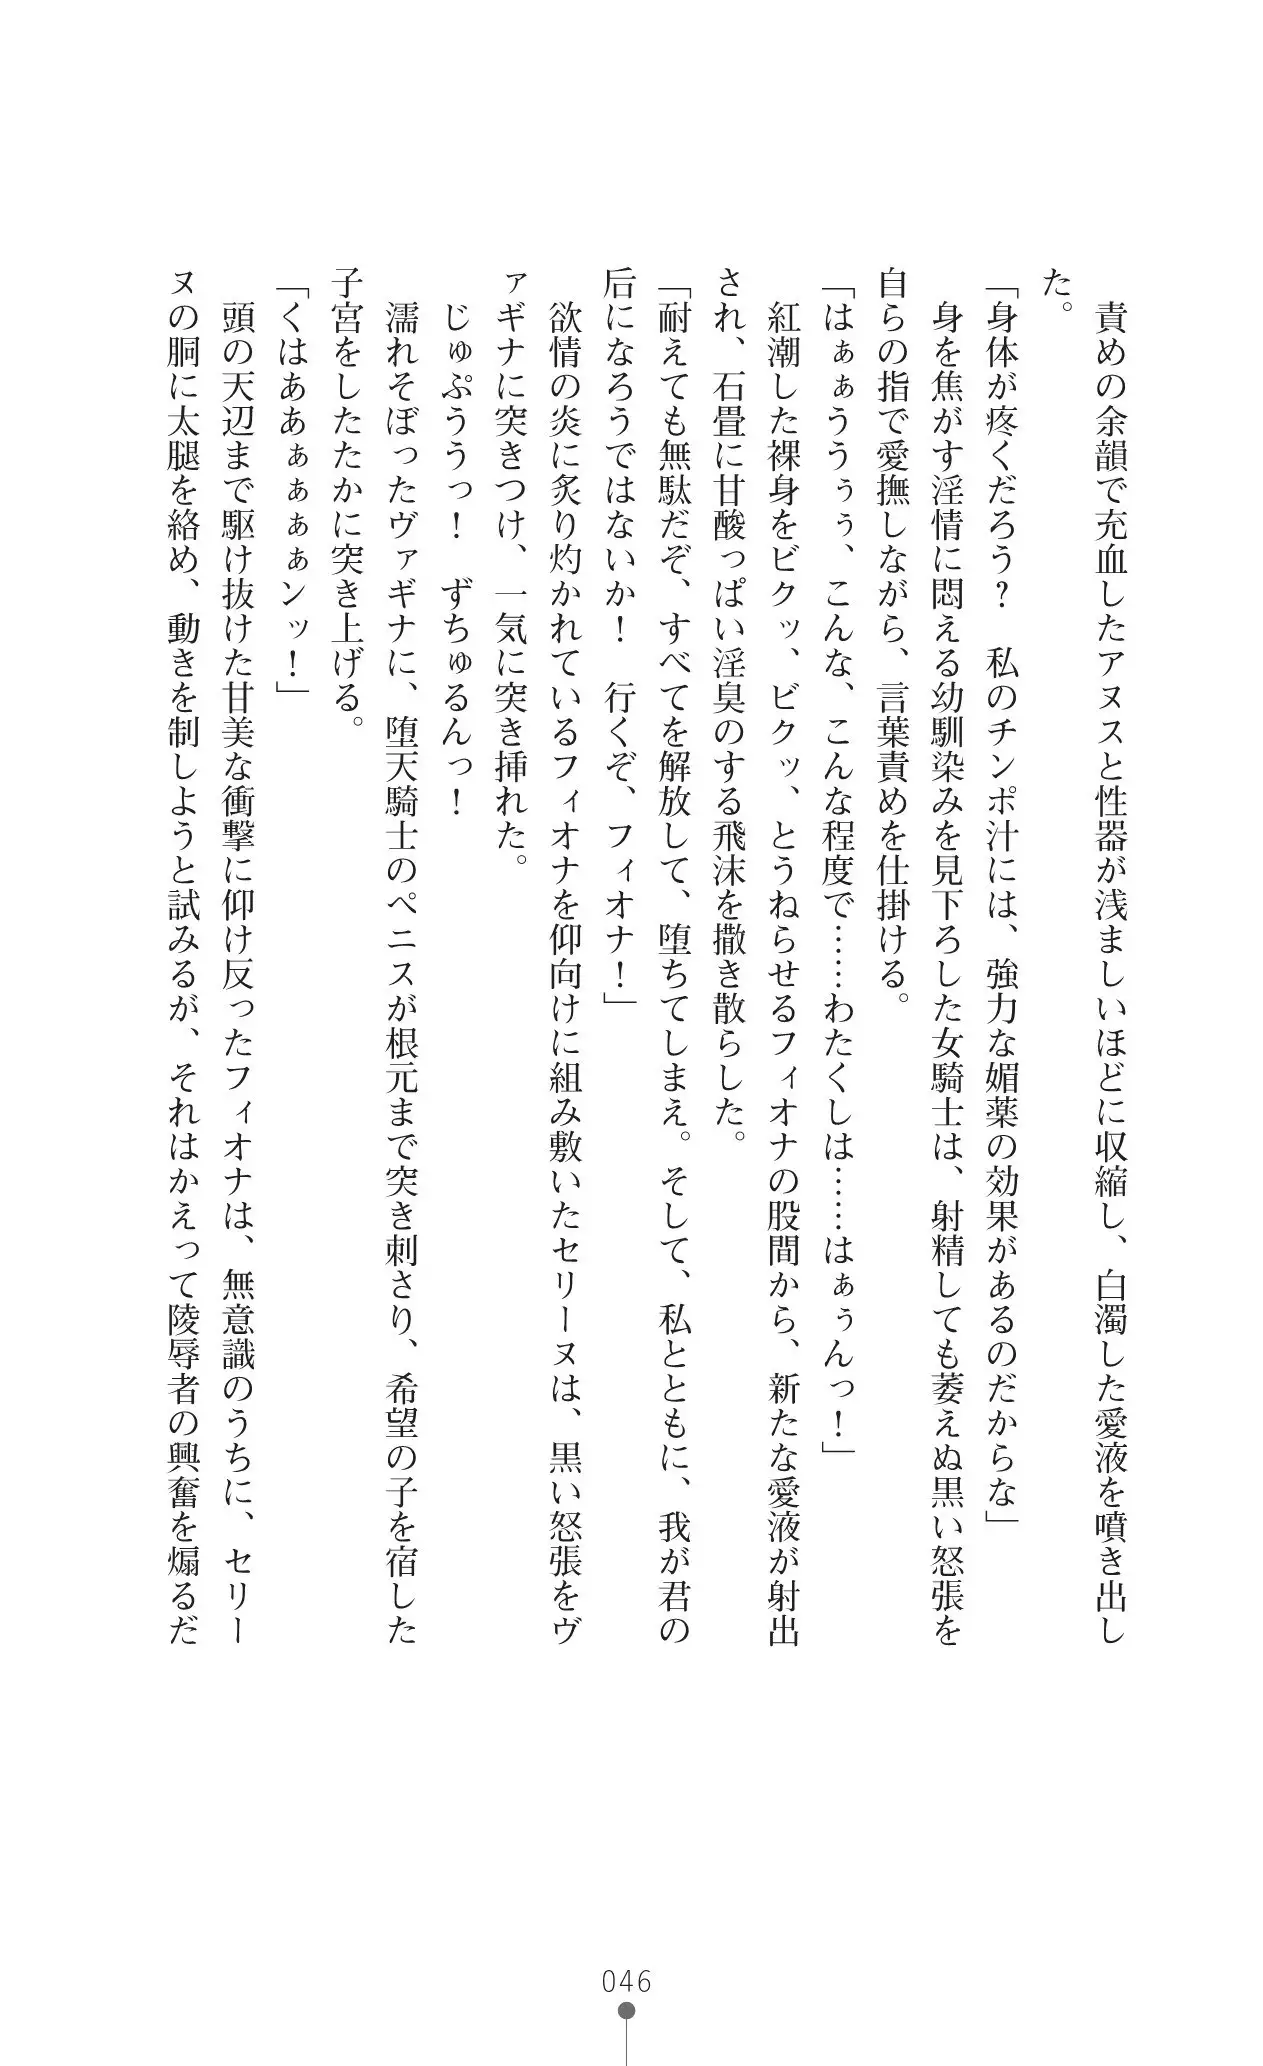 責めの余韻で充血したアヌスと性器が浅ましいほどに収縮し、白濁した愛液を噴き出し
た。
「身体が疼くだろう？　私のチンポ汁には、強力な媚薬の効果があるのだからな」
　身を焦がす淫情に悶える幼馴染みを見下ろした女騎士は、射精しても萎えぬ黒い怒張を
自らの指で愛撫しながら、言葉責めを仕掛ける。
「はぁぁううぅぅ、こんな、こんな程度で……わたくしは……はぁぅんっ！」
　紅潮した裸身をビクッ、ビクッ、とうねらせるフィオナの股間から、新たな愛液が射出
され、石畳に甘酸っぱい淫臭のする飛沫を撒き散らした。
「耐えても無駄だぞ、すべてを解放して、堕ちてしまえ。そして、私とともに、我が君の
后になろうではないか！　行くぞ、フィオナ！」
　欲情の炎に炙り灼かれているフィオナを仰向けに組み敷いたセリーヌは、黒い怒張をヴ
ァギナに突きつけ、一気に突き挿れた。
　じゅぷううっ！　ずちゅるんっ！
　濡れそぼったヴァギナに、堕天騎士のペニスが根元まで突き刺さり、希望の子を宿した
子宮をしたたかに突き上げる。
「くはああぁぁぁぁンッ！」
　頭の天辺まで駆け抜けた甘美な衝撃に仰け反ったフィオナは、無意識のうちに、セリー
ヌの胴に太腿を絡め、動きを制しようと試みるが、それはかえって陵辱者の興奮を煽るだ
046